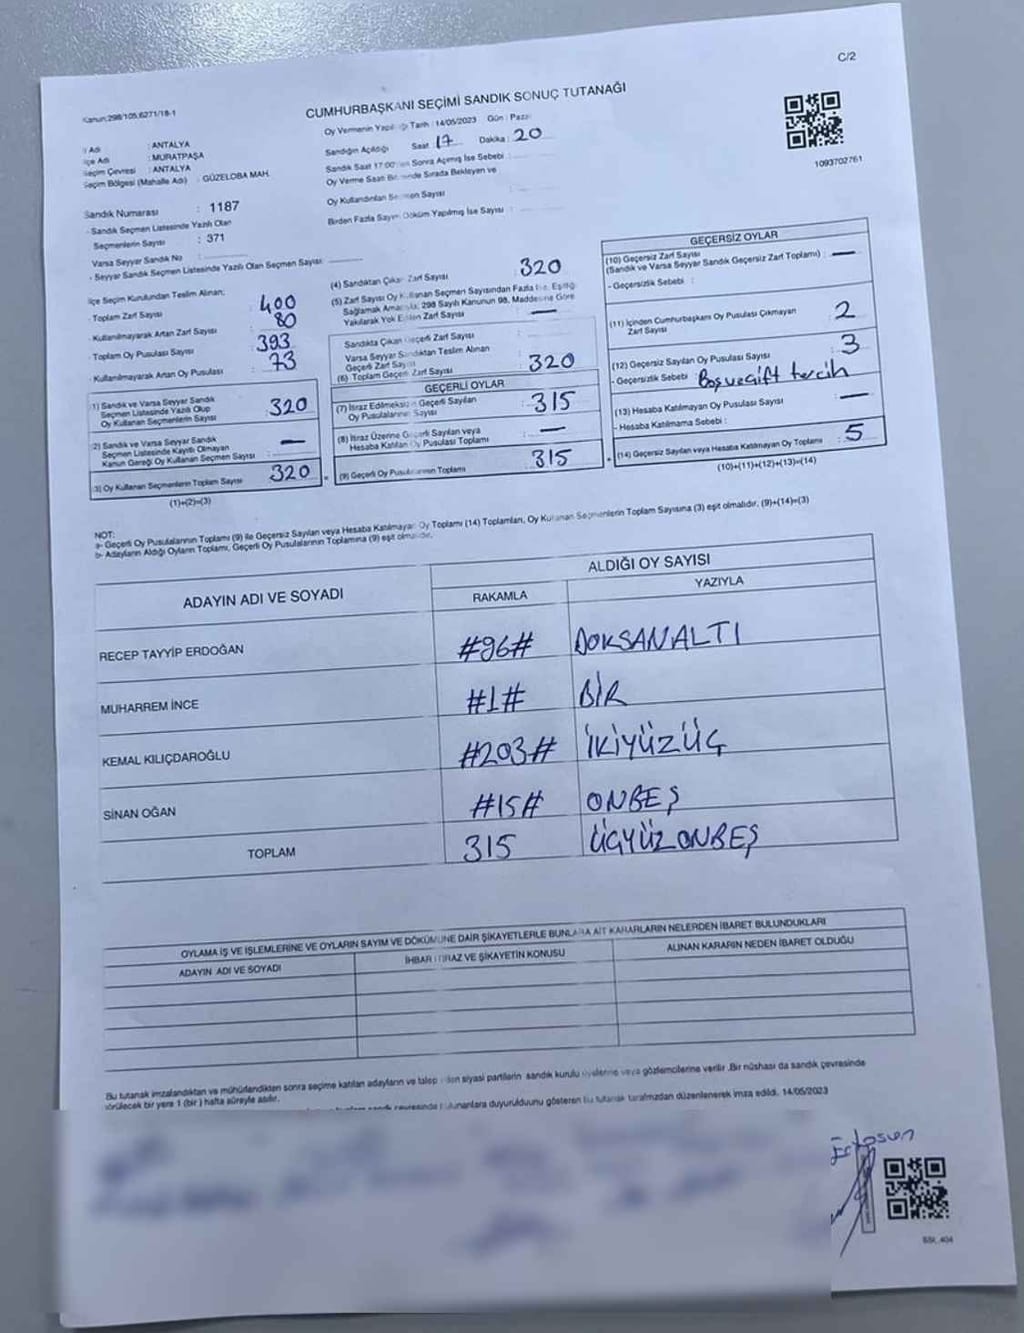 C/2
Kanun:298/105,6271/18-1
CUMHURBAŞKANI SEÇİMİ SANDIK SONUÇ TUTANAĞI
Oy Vermenin Yapıldığı Tarih :14/05/2023 Gün : Pazar
Sandığın Açıldığı Saat 17 Dakika : 20
Sandık Saat 17:00 Sonra Açımış İse Sebebi :
Oy Verme Saati Sırada Bekleyen ve
Oy Kullandırılan Seçmen Sayısı
Birden Fazla Sayım Döküm Yapılmış İse Sayısı :
İl Adı : ANTALYA
İlçe Adı : MURATPAŞA
Seçim Çevresi : ANTALYA
Seçim Bölgesi (Mahalle Adı) : GÜZELOBA MAH.
1093702761
Sandık Numarası : 1187
- Sandık Seçmen Listesinde Yazılı Olan
Seçmenlerin Sayısı : 371
Varsa Seyyar Sandık No :
- Seyyar Sandık Seçmen Listesinde Yazılı Olan Seçmen Sayısı:
İlçe Seçim Kurulundan Teslim Alınan;
- Toplam Zarf Sayısı : 400
- Kullanılmayarak Artan Zarf Sayısı : 80
- Toplam Oy Pusulası Sayısı : 393
- Kullanılmayarak Artan Oy Pusulası : 73
(1) Sandık ve Varsa Seyyar Sandık
Seçmen Listesinde Yazılı Olup
Oy Kullanan Seçmenlerin Sayısı : 320
(2) Sandık ve Varsa Seyyar Sandık
Seçmen Listesinde Kayıtlı Olmayan
Kanun Gereği Oy Kullanan Seçmen Sayısı : —
(3) Oy Kullanan Seçmenlerin Toplam Sayısı 320
(1)+(2)=(3)
(4) Sandıktan Çıkan Zarf Sayısı : 320
(5) Zarf Sayısı Oy Kullanan Seçmen Sayısından Fazla İse, Eşitliği
Sağlamak Amacıyla; 298 Sayılı Kanunun 98. Maddesine Göre
Yakılarak Yok Edilen Zarf Sayısı : —
Sandıkta Çıkan Geçerli Zarf Sayısı
Varsa Seyyar Sandıktan Teslim Alınan
Geçerli Zarf Sayısı
(6) Toplam Geçerli Zarf Sayısı : 320
GEÇERLİ OYLAR
(7) İtiraz Edilmeksizin Geçerli Sayılan
Oy Pusulalarının Sayısı : 315
(8) İtiraz Üzerine Geçerli Sayılan veya
Hesaba Katılan Oy Pusulası Toplamı : —
(9) Geçerli Oy Pusulalarının Toplamı 315
GEÇERSİZ OYLAR
(10) Geçersiz Zarf Sayısı
(Sandık ve Varsa Seyyar Sandık Geçersiz Zarf Toplamı) : —
- Geçersizlik Sebebi :
(11) İçinden Cumhurbaşkanı Oy Pusulası Çıkmayan
Zarf Sayısı : 2
(12) Geçersiz Sayılan Oy Pusulası Sayısı : 3
- Geçersizlik Sebebi : Boş ve Çift tercih
(13) Hesaba Katılmayan Oy Pusulası Sayısı : —
- Hesaba Katılmama Sebebi :
(14) Geçersiz Sayılan veya Hesaba Katılmayan Oy Toplamı : 5
(10)+(11)+(12)+(13)=(14)
NOT:
a- Geçerli Oy Pusulalarının Toplamı (9) ile Geçersiz Sayılan veya Hesaba Katılmayan Oy Toplamı (14) Toplamları, Oy Kullanan Seçmenlerin Toplam Sayısına (3) eşit olmalıdır. (9)+(14)=(3)
b- Adayların Aldığı Oyların Toplamı, Geçerli Oy Pusulalarının Toplamına (9) eşit olmalıdır.
ADAYIN ADI VE SOYADI ALDIĞI OY SAYISI
RAKAMLA YAZIYLA
RECEP TAYYİP ERDOĞAN #96# DOKSANALTI
MUHARREM İNCE #1# BİR
KEMAL KILIÇDAROĞLU #203# İKİYÜZÜÇ
SİNAN OĞAN #15# ONBEŞ
TOPLAM 315 ÜÇYÜZONBEŞ
OYLAMA İŞ VE İŞLEMLERİNE VE OYLARIN SAYIM VE DÖKÜMÜNE DAİR ŞİKAYETLERLE BUNLARA AİT KARARLARIN NELERDEN İBARET BULUNDUKLARI
ADAYIN ADI VE SOYADI İHBAR İTİRAZ VE ŞİKAYETİN KONUSU ALINAN KARARIN NEDEN İBARET OLDUĞU
Bu tutanak imzalandıktan ve mühürlendikten sonra seçime katılan adayların ve talep eden siyasi partilerin sandık kurulu üyelerine veya gözlemcilerine verilir .Bir nüshası da sandık çevresinde
görülecek bir yere 1 (bir ) hafta süreyle asılır.
sandık çevresinde bulunanlara duyurulduunu gösteren bu tutanak tarafımızdan düzenlenerek imza edildi. 14/05/2023
SSL 404